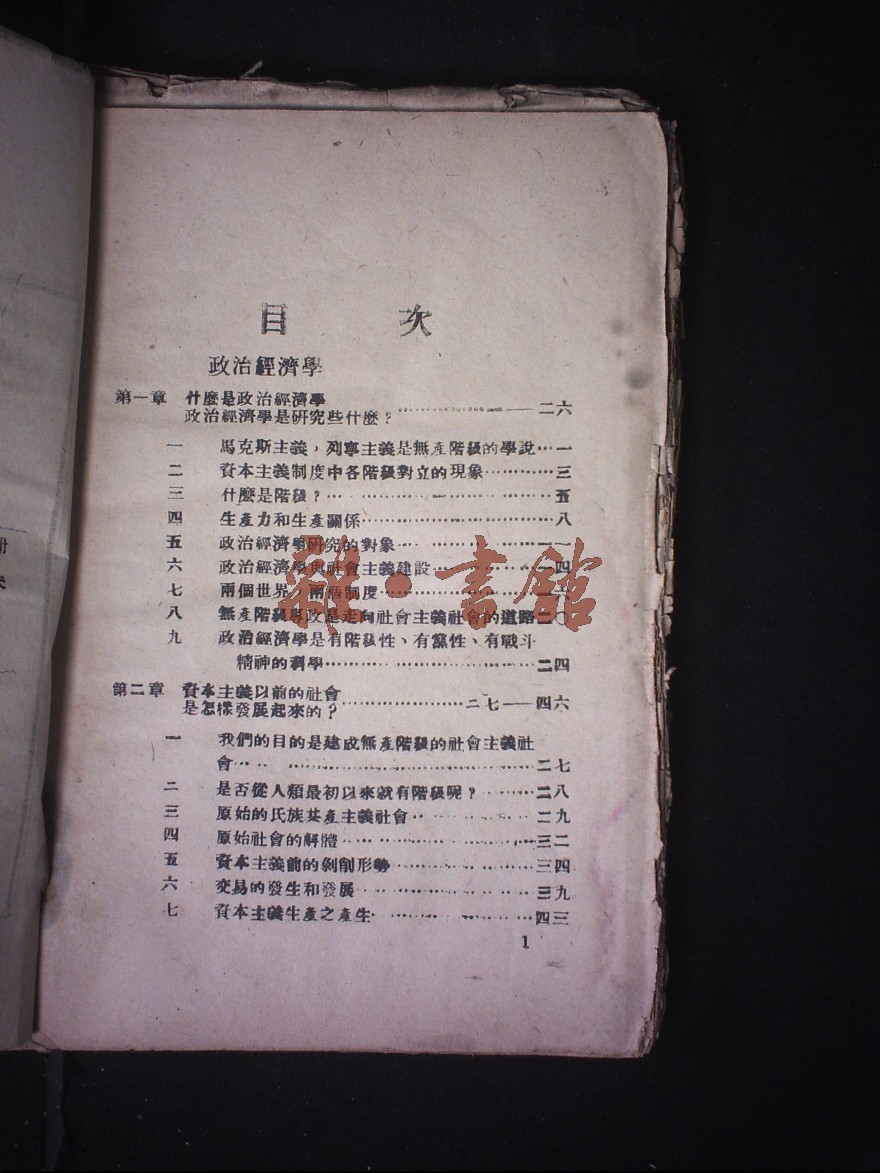 目 次
政治經濟學
第一章 什麼是政治經濟學
政治經濟學是研究些什麼？…………——二六
一 馬克斯主義，列寧主義是無產階級的學說…一
二 資本主義制度中各階級對立的現象…………三
三 什麼是階級？…………………………五
四 生產力和生產關係…………………………八
五 政治經濟學研究的對象…………………一一
六 政治經濟學與社會主義建設……………一四
七 兩個世界，兩個制度
八 無產階級專政是走向社會主義社會的道路二〇
九 政治經濟學是有階級性、有黨性、有戰斗
精神的科學…………………………二四
第二章 資本主義以前的社會
是怎樣發展起來的？…………………二七——四六
一 我們的目的是建成無產階級的社會主義社
會…………………………………二七
二 是否從人類最初以來就有階級呢？………二八
三 原始的氏族共產主義社會……………二九
四 原始社會的解體…………………三二
五 資本主義前的剝削形勢………………三四
六 交易的發生和發展…………………三九
七 資本主義生產之產生…………………四三
1
雜·書館